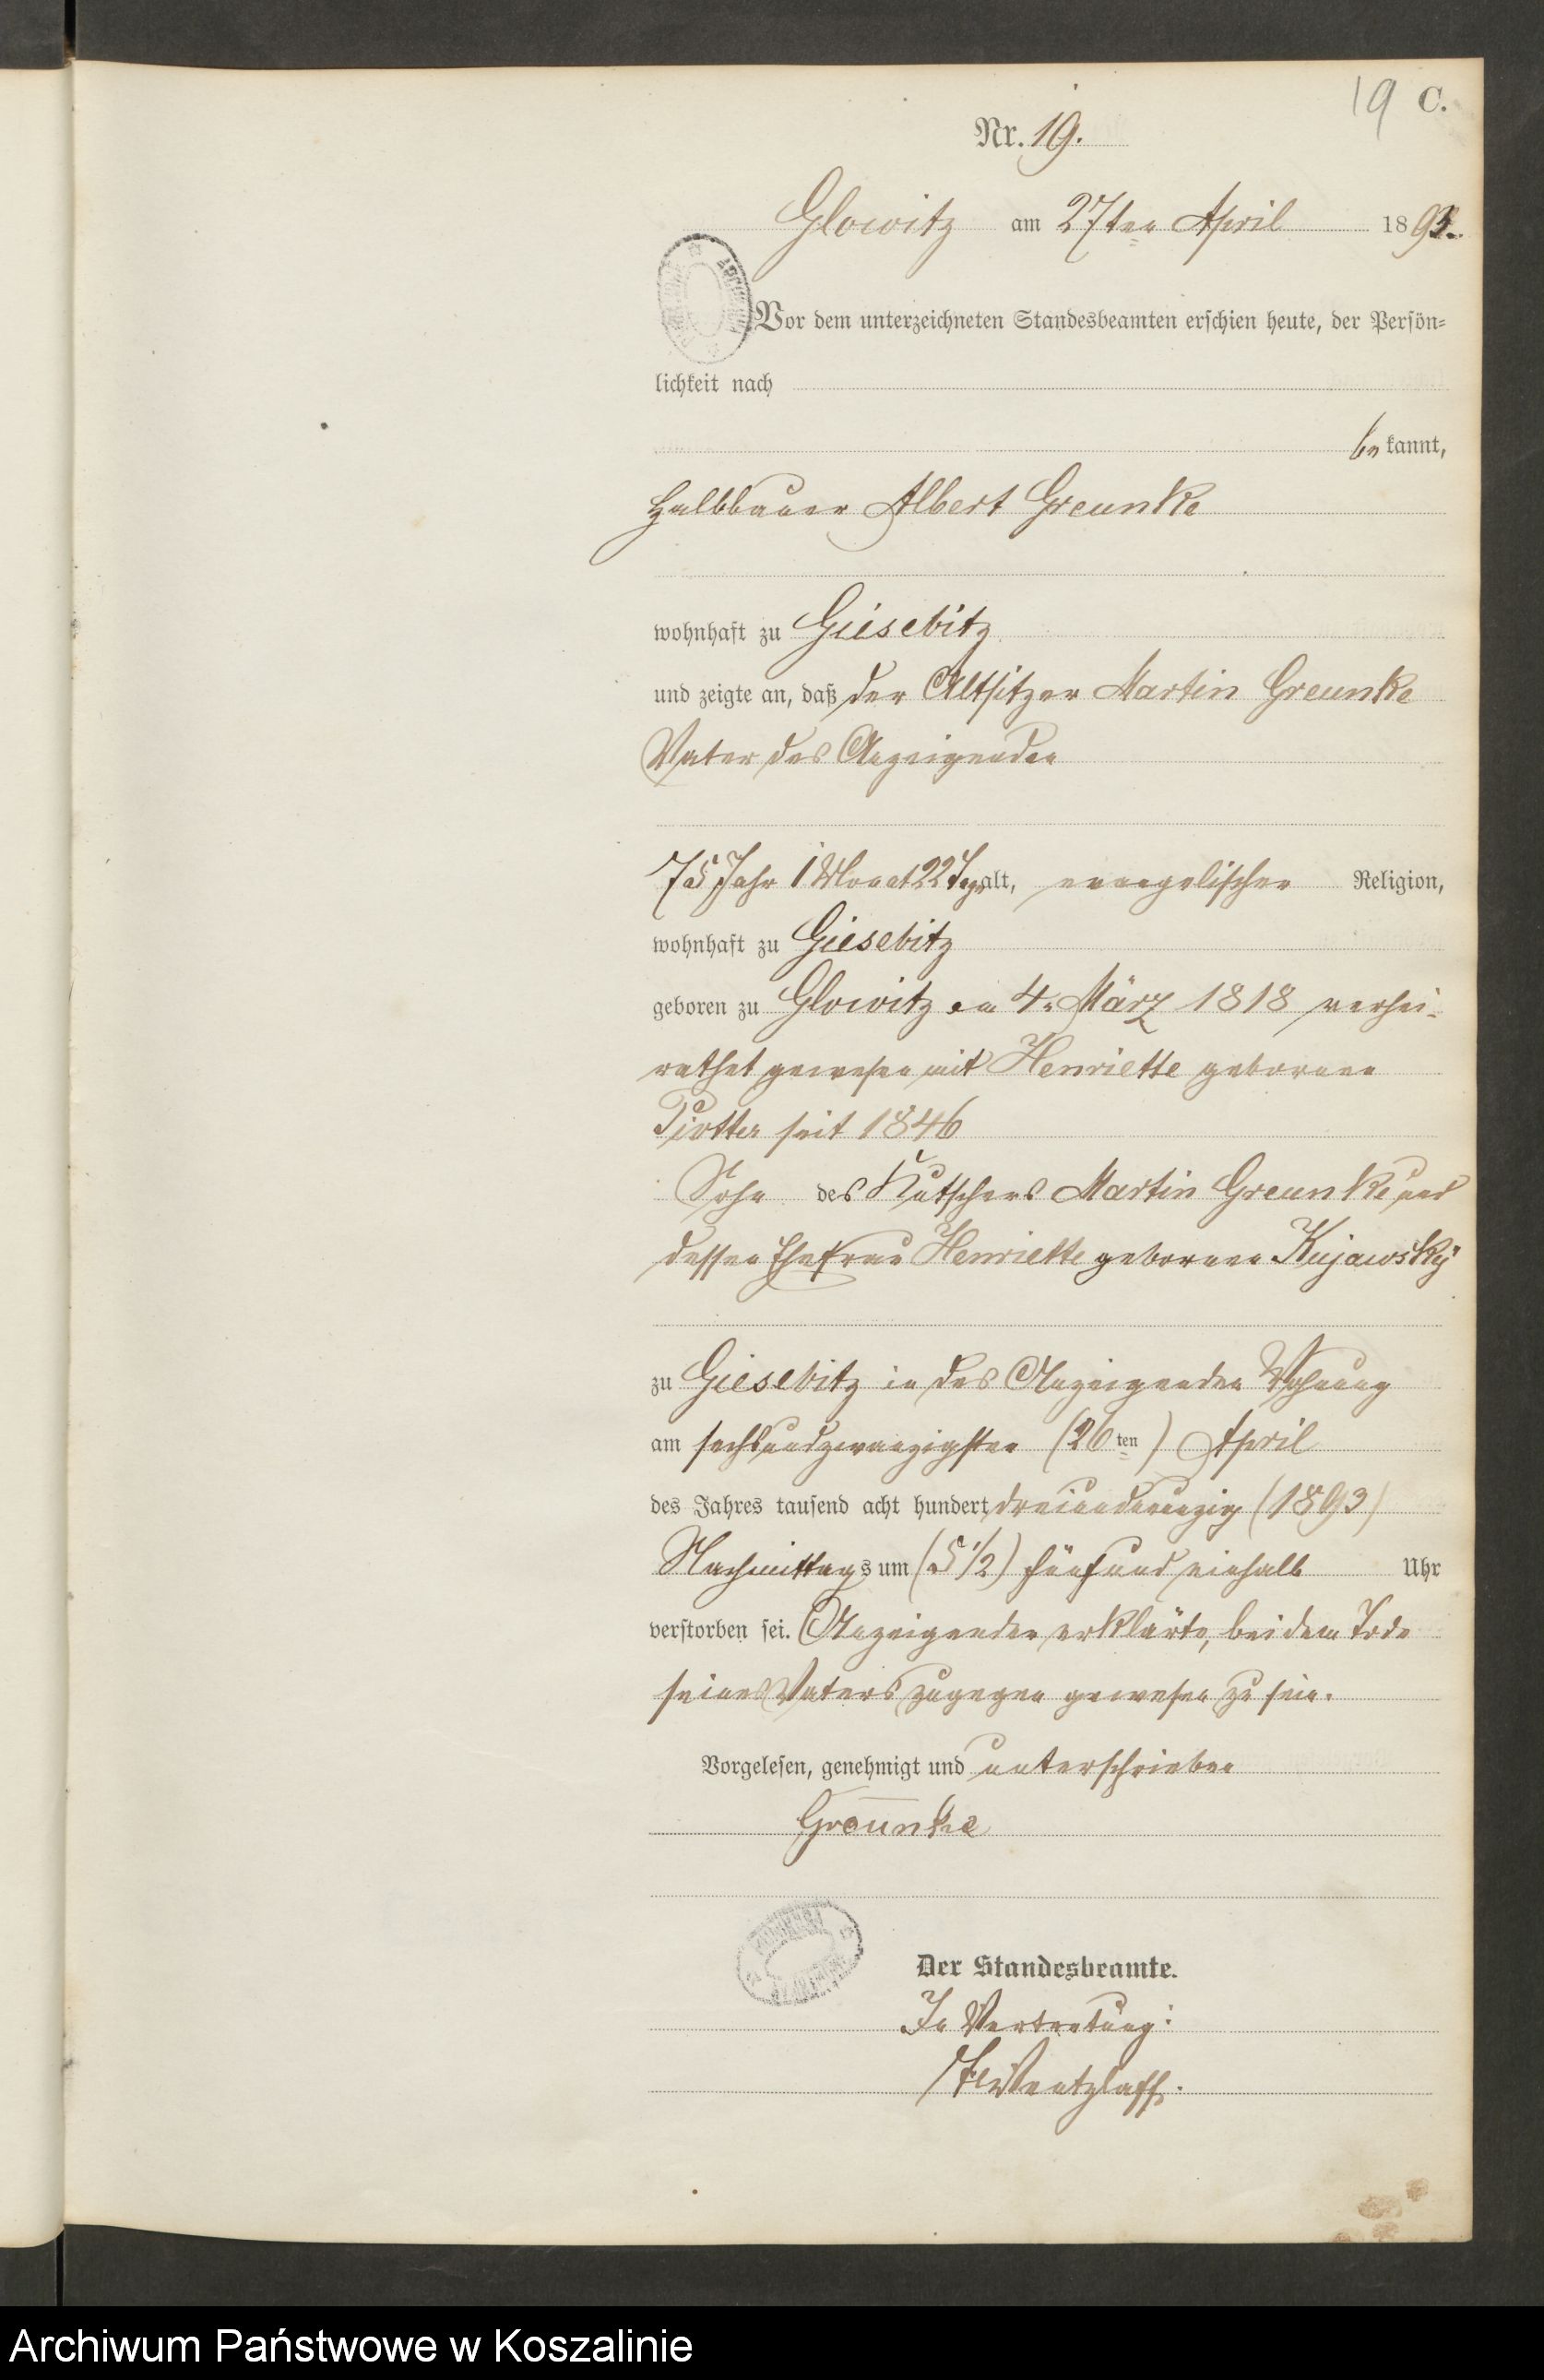 19 C.
Nr. 19.
Glowitz am 27ten April 1893.
Vor dem unterzeichneten Standesbeamten erschien heute, der Persön=
lichkeit nach
be kannt,
Halbbauer Albert Greunke
wohnhaft zu Giesebitz
und zeigte an, daß der Altsitzer Martin Greunke
Vater des Anzeigenden
75 Jahr 1 Monat 22 Tage alt, evangelischer Religion,
wohnhaft zu Giesebitz
geboren zu Glowitz am 4. März 1818 verhei-
rathet gewesen mit Henriette geborenen
Piotter seit 1846
Sohn des Kutschers Martin Greunke und
dessen Ehefrau Henriette geborenen Kujawsky
zu Giesebitz in des Anzeigenden Wohnung
am sechsundzwanzigsten (26ten) April
des Jahres tausend acht hundert dreiundneunzig (1893)
Nachmittags um (5 1/2) fünf und einhalb Uhr
verstorben sei. Anzeigender erklärte, bei dem Tode
seines Vaters zugegen gewesen zu sein.
Vorgelesen, genehmigt und unterschrieben
Greunke
Der Standesbeamte.
In Vertretung:
Wentzlaff.
Archiwum Państwowe w Koszalinie